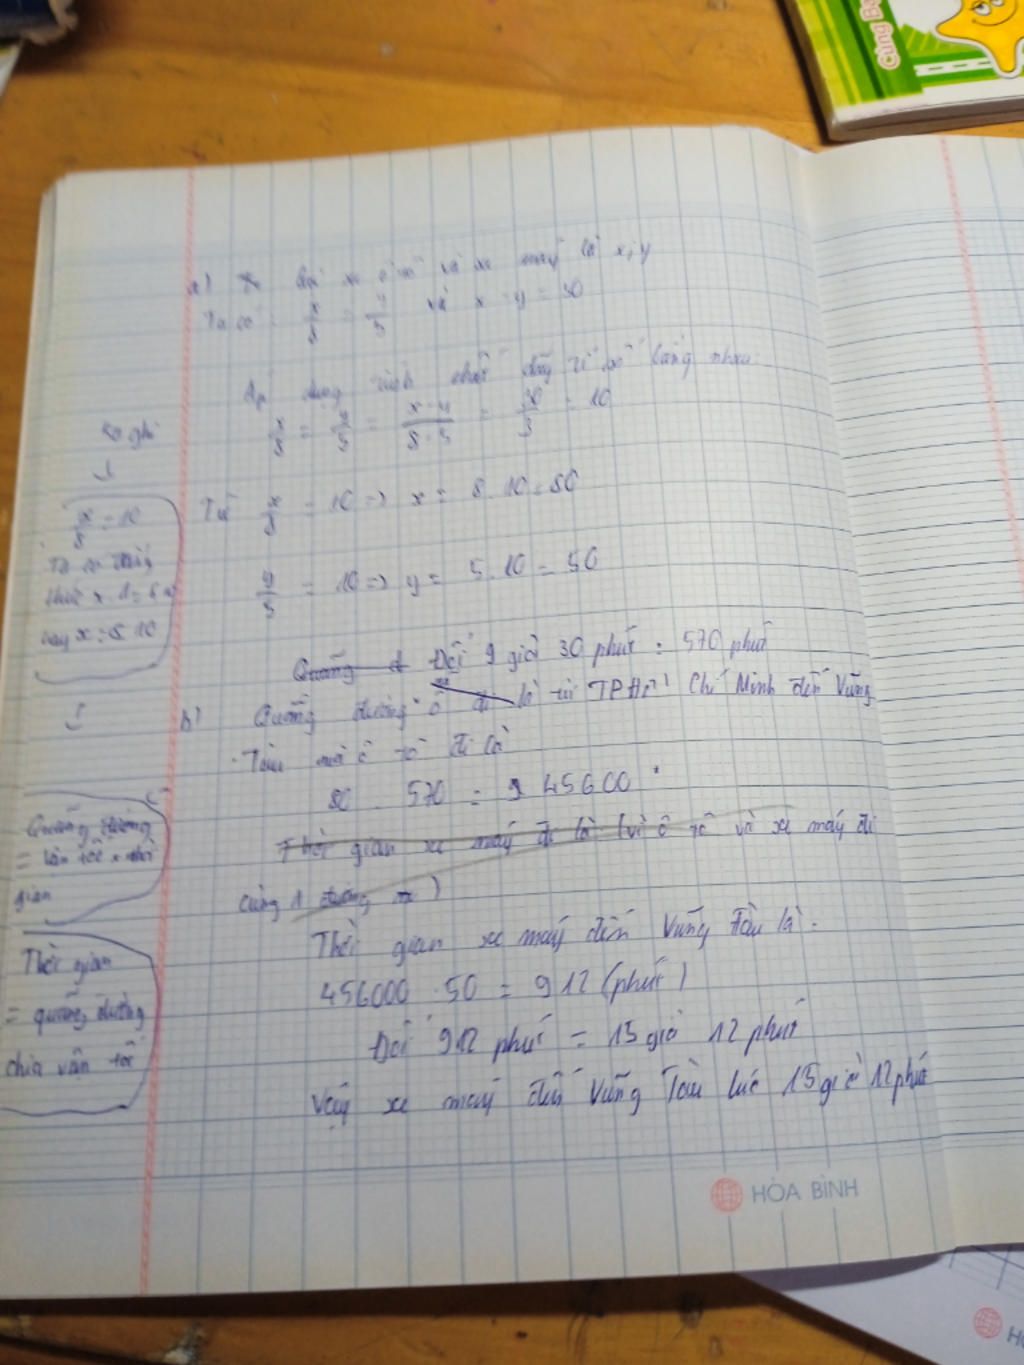 Cùng B
a) Gọi xe ô tô và xe máy là x; y
Ta có: x/8 = y/5 và x - y = 30
Áp dụng tính chất dãy tỉ số bằng nhau:
x/8 = y/5 = x-y/8-5 = 30/3 = 10
Từ x/8 = 10 => x = 8.10 = 80
y/5 = 10 => y = 5.10 = 50
Ko ghi
x/8 = 10
Ta có đẳng
thức x.1=8.10
hay x = 8.10
Quãng đường
= vận tốc x thời
gian
Thời gian
= quãng đường
chia vận tốc
Quãng đ Đổi 9 giờ 30 phút = 570 phút
b) Quãng đường ô đi là từ TPHồ Chí Minh đến Vũng
Tàu mà ô tô đi là
80 . 570 = 45600
Thời gian xe máy đi là: (vì ô tô và xe máy đi
cùng 1 đường)
Thời gian xe máy đến Vũng Tàu là:
456000 . 50 = 912 (phút)
Đổi 912 phút = 15 giờ 12 phút
Vậy xe máy đến Vũng Tàu lúc 15 giờ 12 phút
HÒA BÌNH